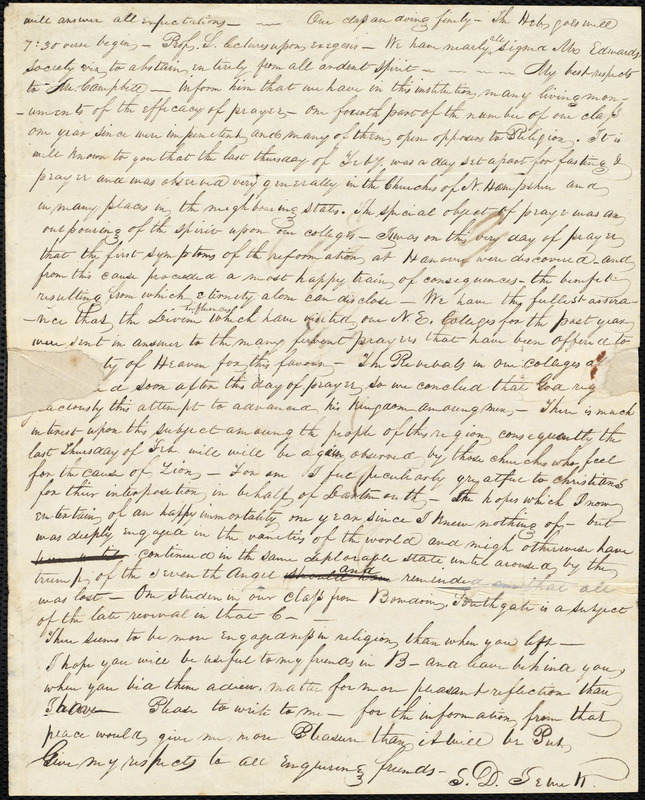 will answer all expectations — — Our class are doing finely — Th Heb. goes well
7:30 verse begin — Prof. S. lectures upon exegesis — We have nearly all signed Mr Edwards
Society viz to abstain, entirely from all ardent Spirit — — — — My best respects
to Mr Campbell — inform him that we have in this institution, many living mon-
-uments of the efficacy of prayer — One fourth part of the number of our class
one year since were impenitent, and many of them, open opposers to Religion. It is
well known to you that the last thursday of Feby. was a day set apart for fasting &
prayer and was observed very generally in the Churches of N. Hampshire and
in many places in the neighbouring states. The special object of prayer was an
out pouring of the spirit upon our colleges — It was on this very day of prayer
that the first symptoms of the reformation at Hanover were discovered — and
from this cause proceeded a most happy train of consequences — the benefits
resulting from which, eternity alone can disclose — We have the fullest assura-
-nce that the Divine influences which have visited our N. E. Colleges for the past year
were sent in answer to the many fervent prayers that have been offered to
ty of Heaven for this favour — The Revivals in our colleges a
d soon after this day of prayer, so we conclude that God
graciously this attempt to advance his Kingdom among men, — There is much
interest upon this subject among the people of this region, consequently the
last Thursday of Feb. will will be again observed by those churches who feel
for the cause of Zion, — For one I feel peculiarly grateful to christians
for their interposition in behalf of Dartmouth, — The hopes which I now
entertain of an happy immortality one year since I knew nothing of — but
was deeply engaged in the vanities of the world and might otherwise have
continued in the same deplorable state until aroused by the
trump of the Seventh Angel and reminded that all
was lost — One student in our class from Bowdoin, Southgate is a subject
of the late revival in that C — —
There seems to be more Engagedness in religion, than when you left —
I hope you will be useful to my friends in B — and leave behind you,
when you bid them adieu, matter for more pleasant reflection than
I have — Please to write to me — for the information from that
peace would give me more Pleasure than it will be
Give my respects to all Enquiring friends —
S. D.